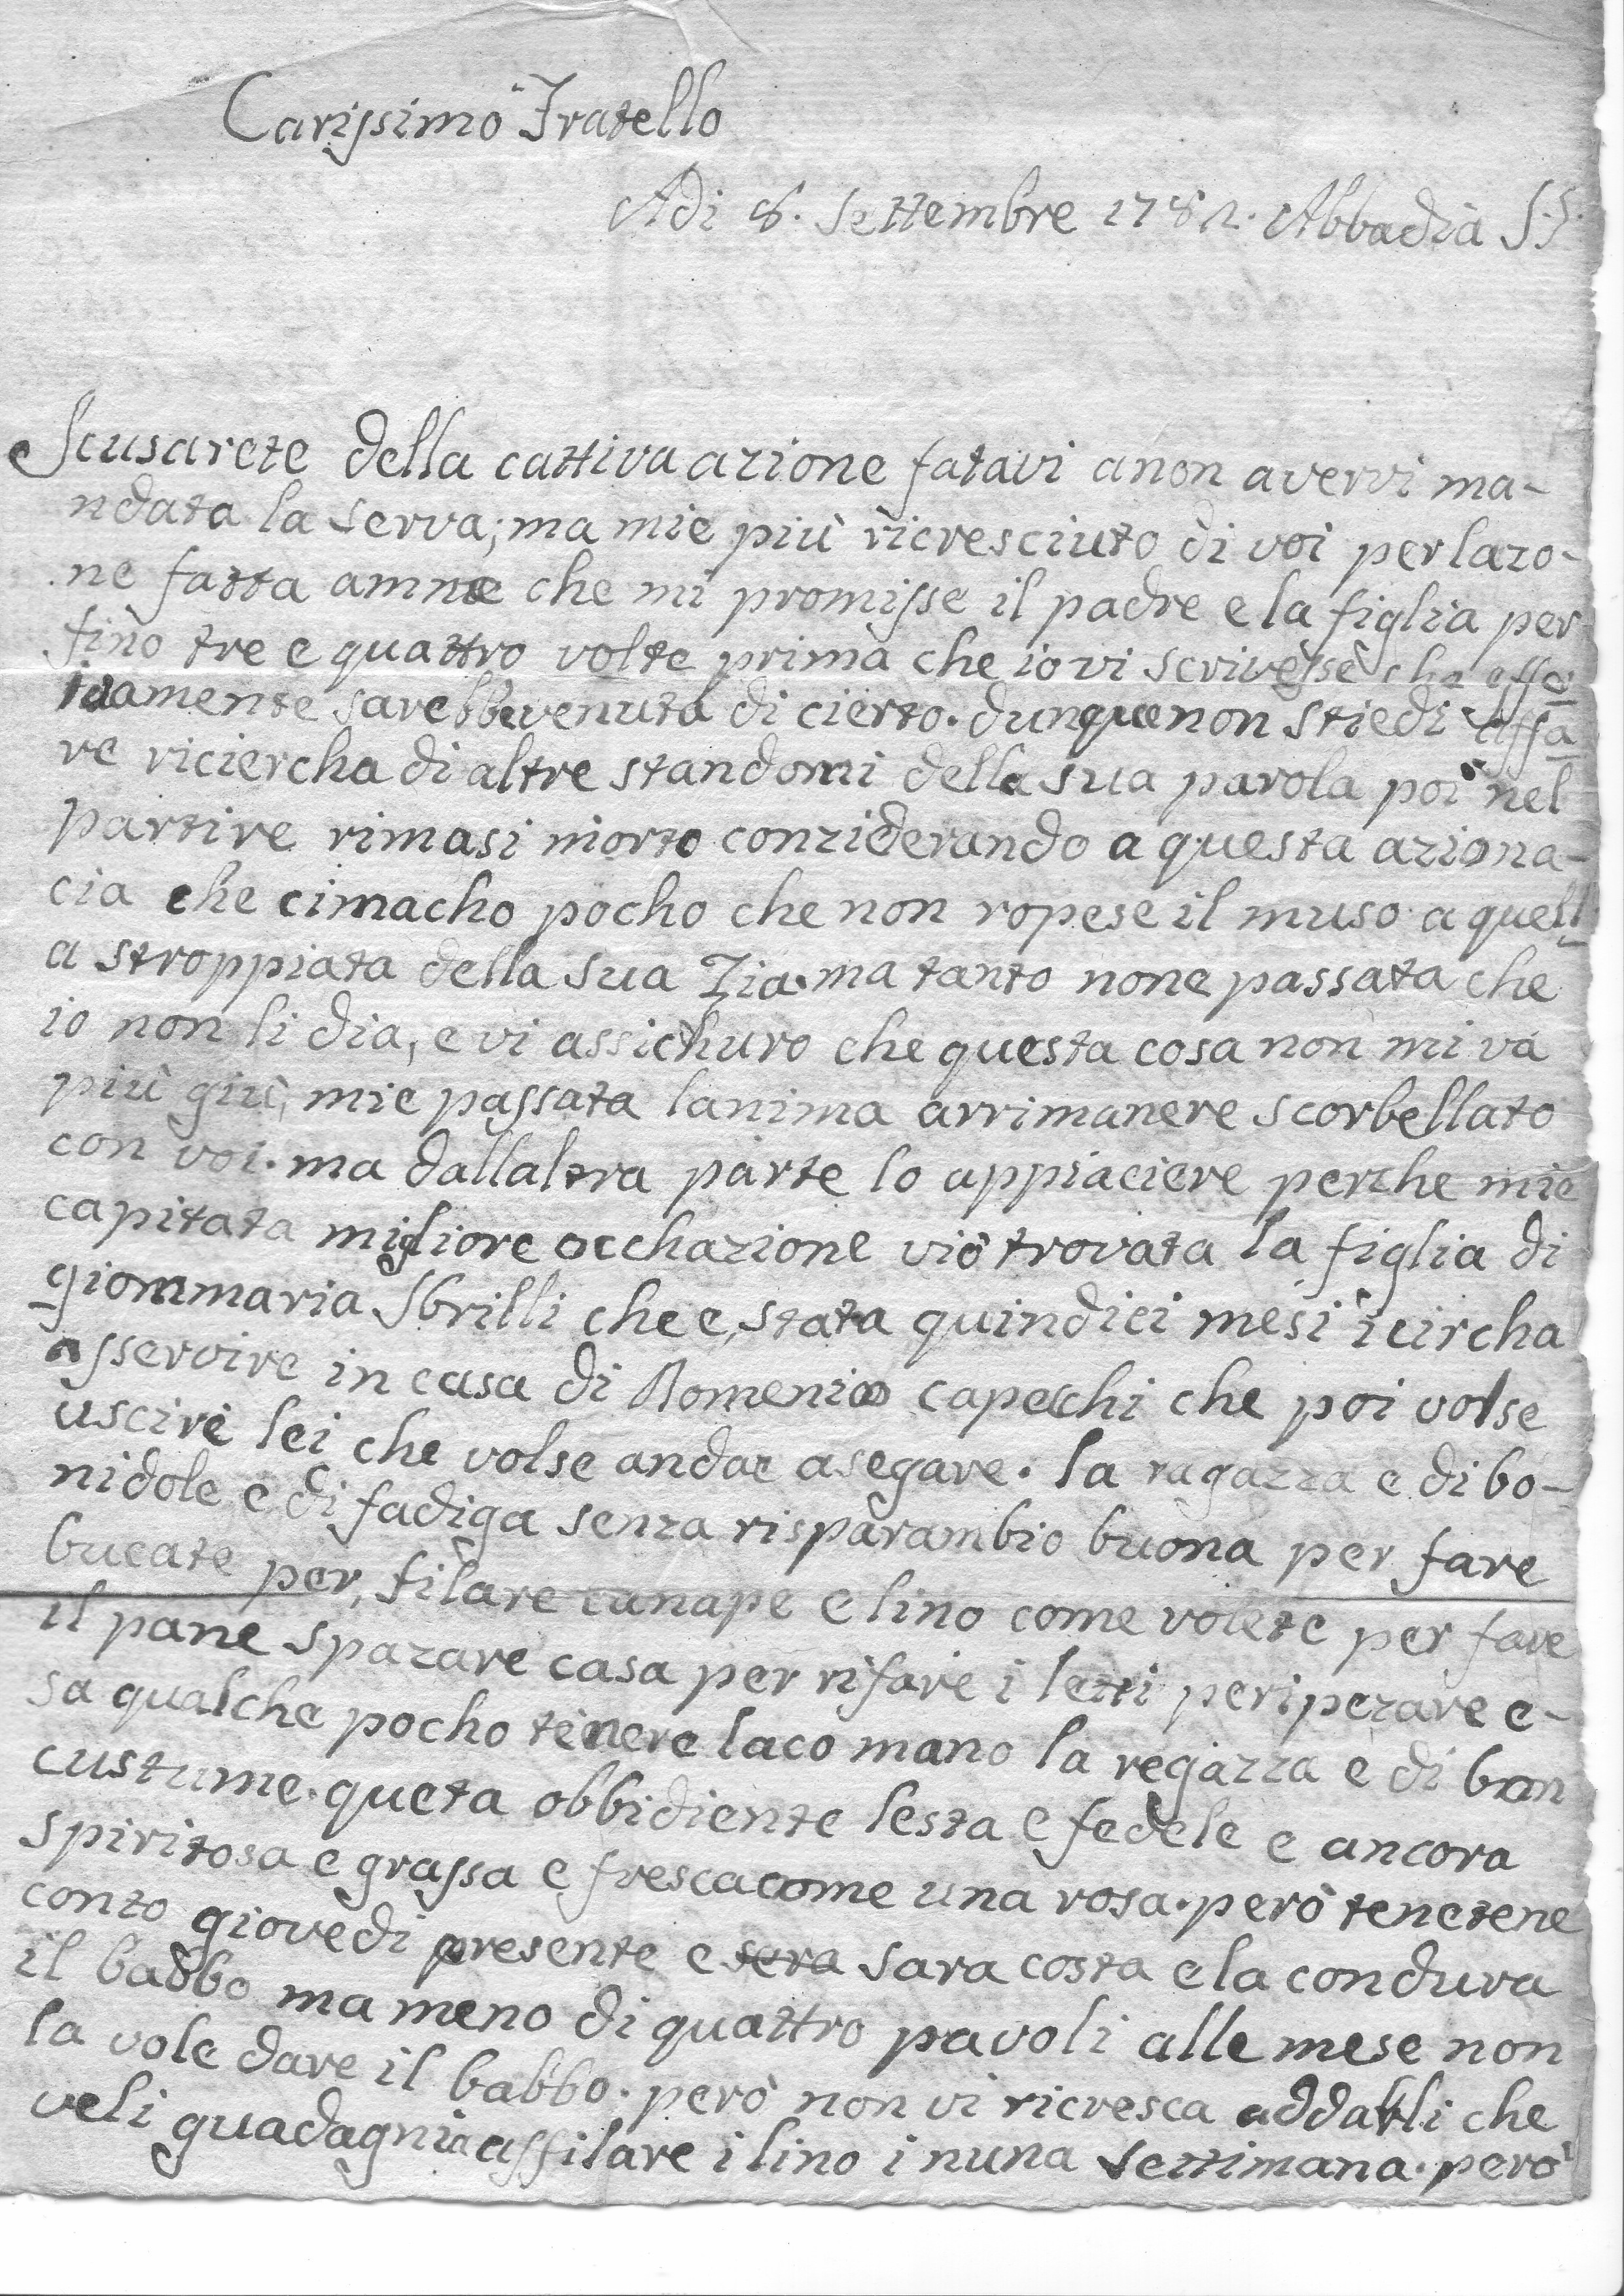 Carissimo Fratello
Adi 8. Settembre 1782. Abbadia S.S.
Scusarete della cattiva azione fatavi anon avervi ma-
ndata la serva; ma mie più ricresciuto di voi perlazo-
ne fatta amme che mi promisse il padre e la figlia per
fino tre e quattro volte prima che io vi scrivesse che effe
tuamente sarebbe venuta di cierto. dunque non stiedi affa
re riciercha di altre standomi della sua parola poi nel
partire rimasi morto conziderando a questa aziona-
cia che cimacho pocho che non ropese il muso a quell
a stroppiata della sua Zia. ma tanto none passata che
io non li dia, e vi assichuro che questa cosa non mi va
più giù, mie passata lanima arrimanere scorbellato
con voi. ma dallaltra parte lo appiaciere perche mie
capitata migliore occhazione viò trovata la figlia di
giommaria Sbrilli che e, stata quindici mesi icircha
asservire in casa di Domenico capechi che poi volse
uscire lei che volse andar asegare. la ragazza e di bo-
nidole e di fadiga senza risparambio buona per fare
bucate per, filare canape e lino come volete per fare
il pane spazare casa per rifare i letti peripezare e-
sa qualche pocho tenere laco mano la regazza e di bon
custume. queta obbidiente lesta e fedele e ancora
spiritosa e grassa e fresca come una rosa. però tenetene
conto giovedi presente e sera sara costa e la condura
il babbo ma meno di quattro pavoli alle mese non
la vole dare il babbo. però non vi ricresca addarli che
veli guadagnia affilare i lino i nuna settimana. però